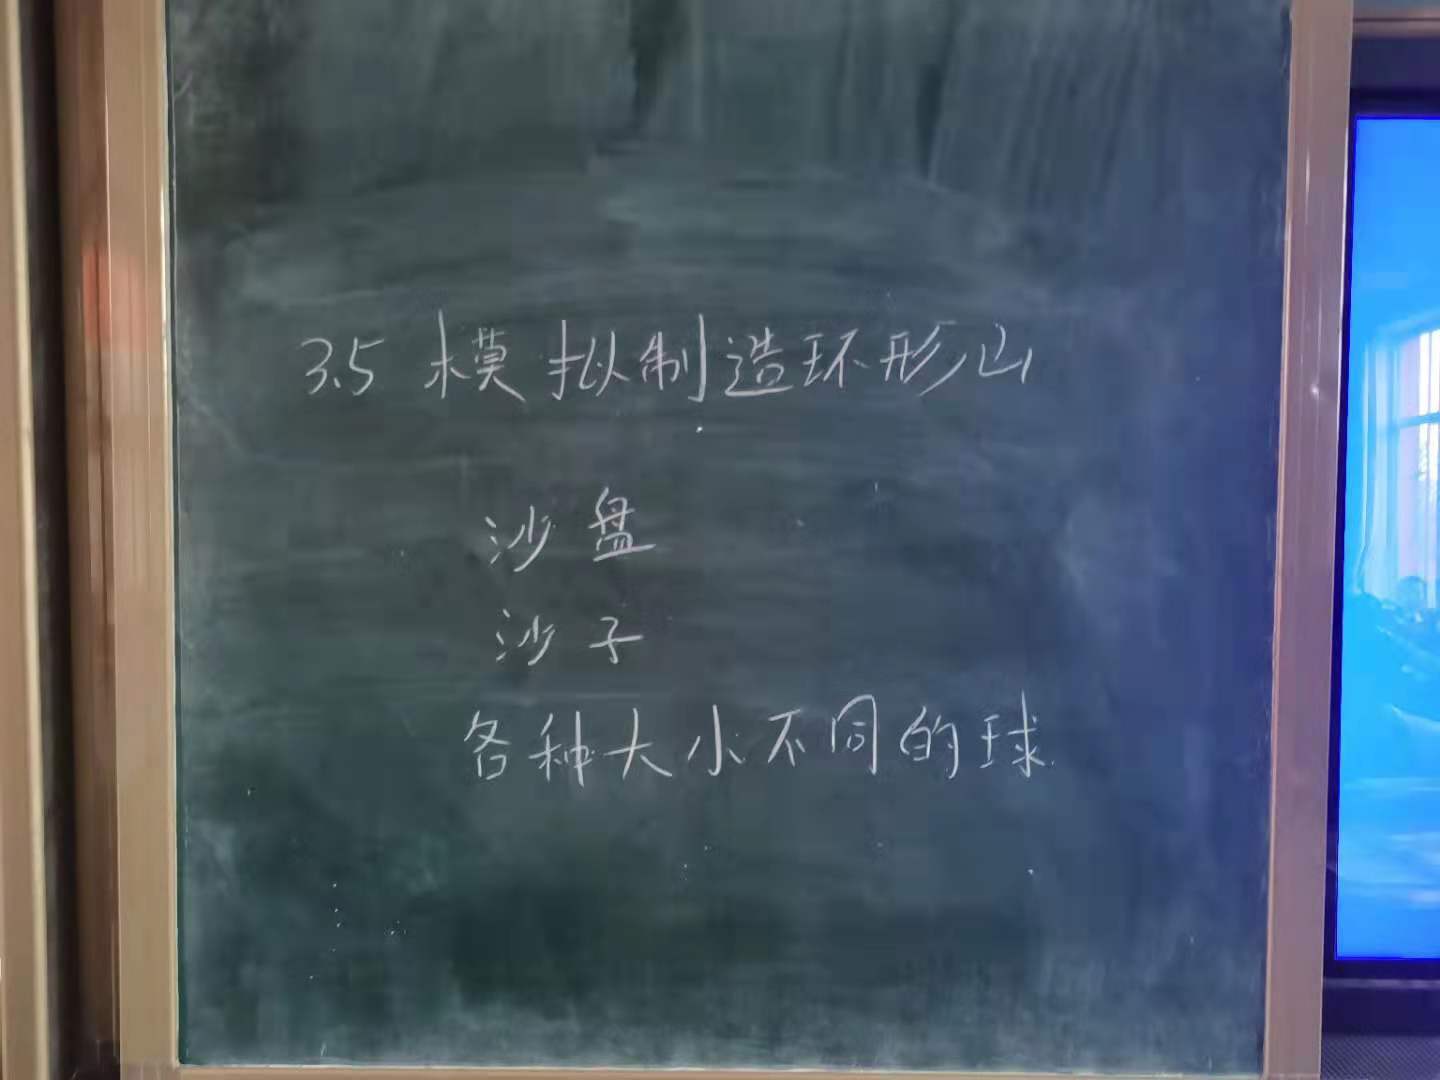 3.5 模拟制造环形山
沙盘
沙子
各种大小不同的球